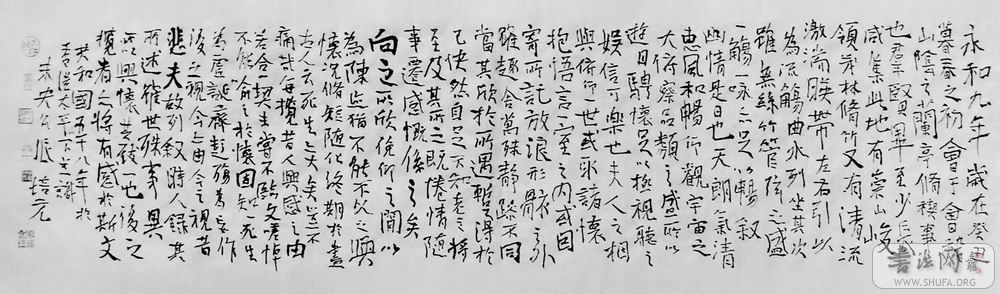 永和九年歲在癸丑
暮春之初會于會稽
山陰之蘭亭脩禊事
也羣賢畢至少長
咸集此地有崇山峻
領茂林脩竹又有清流
激湍暎帶左右引以
為流觴曲水列坐其次
雖無絲竹管弦之盛
一觴一詠亦足以暢敘
幽情是日也天朗氣清
惠風和暢仰觀宇宙之
大俯察品類之盛所以
遊目騁懷足以極視聽之
娛信可樂也夫人之相
與俯仰一世或取諸懷
抱悟言一室之內或因
寄所託放浪形骸之外
雖趣舍萬殊靜躁不同
當其欣於所遇暫得於
己快然自足不知老之將
至及其所之既惓情隨
事遷感慨係之矣
向之所欣俛仰之間以
為陳迹猶不能不以之興
懷況脩短隨化終期於盡
古人云死生亦大矣豈不
痛哉每攬昔人興感之由
若合一契未嘗不臨文嗟悼
不能喻之於懷固知一死生
為虛誕齊彭殤為妄作
後之視今亦由今之視昔
悲夫故列敘時人錄其
所述雖世殊事異
所以興懷其致一也後之
攬者亦將有感於斯文
共和國五十八年於
太平下
未央 張培元
書法网
WWW.SHUFA.ORG